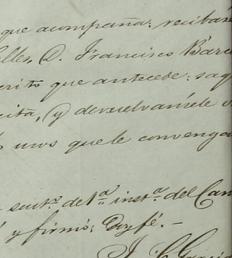 que acompaña: reciban
D. Francisco
crito que antecede: saq
cita, y devuelvaníele
usos que le convenga
de 1ª instª del Can
y firmó: Doy fé. —